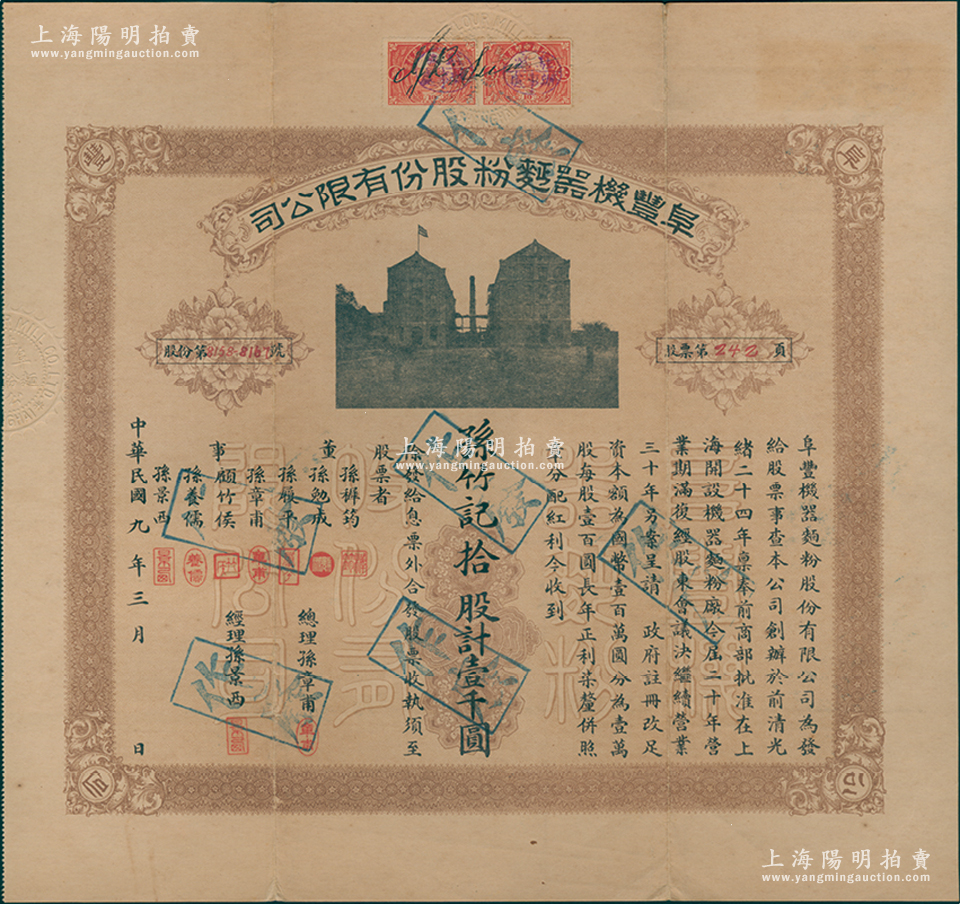 上海陽明拍賣
www.yangmingauction.com
上海陽明拍賣
www.yangmingauction.com
阜豐機器麵粉股份有限公司
阜
豐
股票第242頁
股份第8158-8167號
阜豐機器麵粉股份有限公司為發
給股票事查本公司創辦於前清光
緒二十四年稟奉前商部批准在上
海開設機器麵粉廠今屆二十年營
業期滿復經股東會議決繼續營業
三十年另案呈請 政府註冊改足
資本額為國幣壹百萬圓分為壹萬
股每股壹百圓長年正利柒釐併照
章分配紅利今收到
孫竹記拾股計壹千圓
除發給息票外合發股票收執須至
股票者
董事
孫褲筠
孫勉成
孫棫平
孫章甫
顧竹侯
孫養儒
孫景西
總理孫章甫
經理孫景西
中華民國九年三月 日
作廢
作廢
作廢
作廢
作廢
作廢
上海陽明拍賣
www.yangmingauction.com
上海陽明拍賣
www.yangmingauction.com
上海陽明拍賣
www.yangmingauction.com